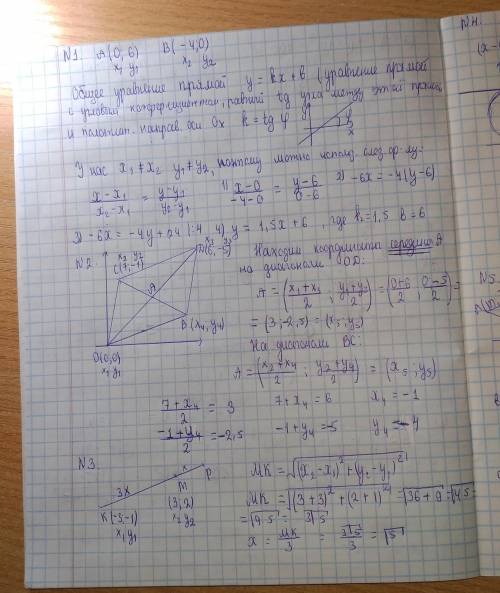 N1. A(0, 6) B(-4,0)
x₁ y₁ x₂ y₂
Общее уравнение прямой y = kx + b (уравнение прямой
с угловым коэффициентом, равный tg угла между этой прямой
и положит. направ. оси Ox k = tg φ
У нас x₁ ≠ x₂ y₁ ≠ y₂, поэтому можно использ. след. ф-лу:
(x-x₁)/(x₂-x₁) = (y-y₁)/(y₂-y₁) 1) (x-0)/(-4-0) = (y-6)/(0-6) 2) -6x = -4(y-6)
3) -6x = -4y+24 |:4 4) y = 1,5x + 6, где k=1,5 b = 6
N2
x₂ y₂
C(7;-1)
x₃ y₃
D(6,-5)
A
B(x₄, y₄)
O(0;0)
x₁ y₁
Находим координаты середины A
на диагонали OD:
A = ((x₁+x₃)/2, (y₁+y₃)/2) = ((0+6)/2, (0-5)/2) =
= (3; -2,5) = (x₅; y₅)
На диагонали BC:
A = ((x₂+x₄)/2; (y₂+y₄)/2) = (x₅; y₅)
(7+x₄)/2 = 3 7+x₄ = 6 x₄ = -1
(-1+y₄)/2 = -2,5 -1+y₄ = -5 y₄ = -4
N3.
3x
x
P
M
(3; 2)
x₂ y₂
K(-3;-1)
x₁ y₁
MK = √((x₂-x₁)² + (y₂-y₁)²)
MK = √((3+3)² + (2+1)²) = √(36+9) = √45 =
= √(9·5) = 3√5
x = MK/3 = 3√5/3 = √5
N4.
N5